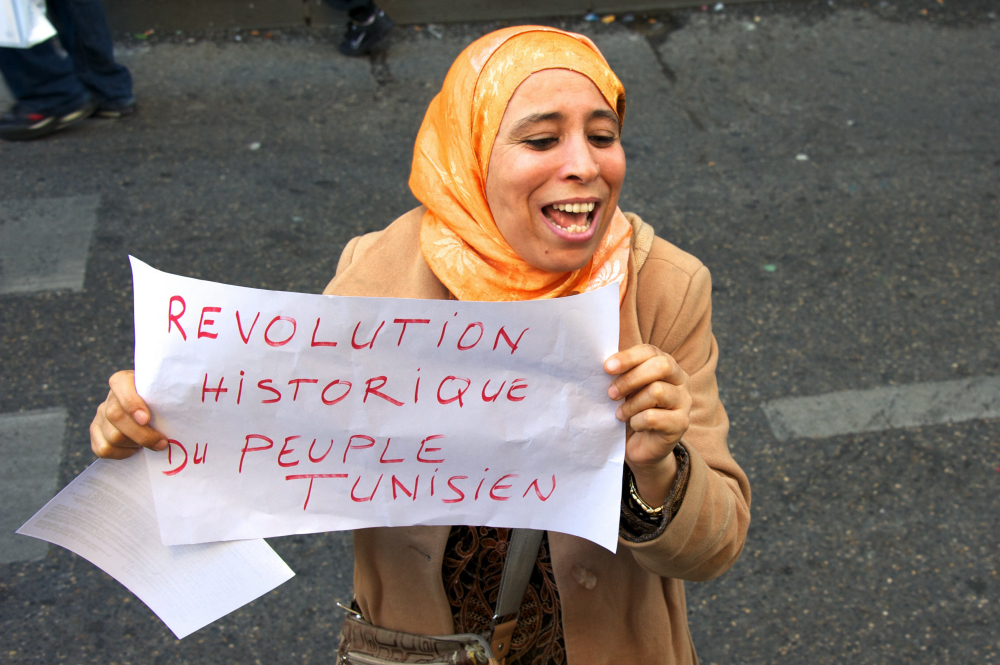 REVOLUTION
HISTORIQUE
DU PEUPLE
TUNISIEN